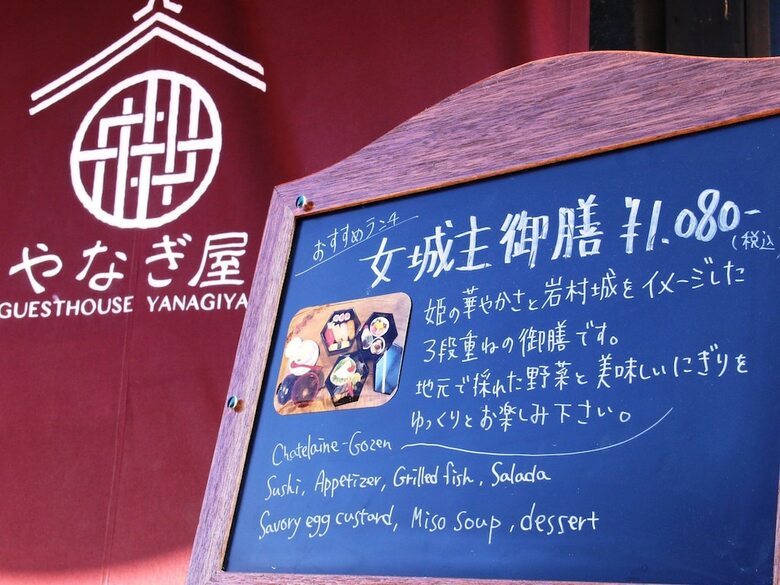 やなぎ屋
GUESTHOUSE YANAGIYA
おすすめランチ
女城主御膳 ¥1.080-
(税込
姫の華やかさと岩村城をイメージした
3段重ねの御膳です。
地元で採れた野菜と美味しいにぎりを
ゆっくりとお楽しみ下さい。
Chatelaine-Gozen
Sushi, Appetizer, Grilled fish, Salada
Savory egg custard, Miso soup, dessert